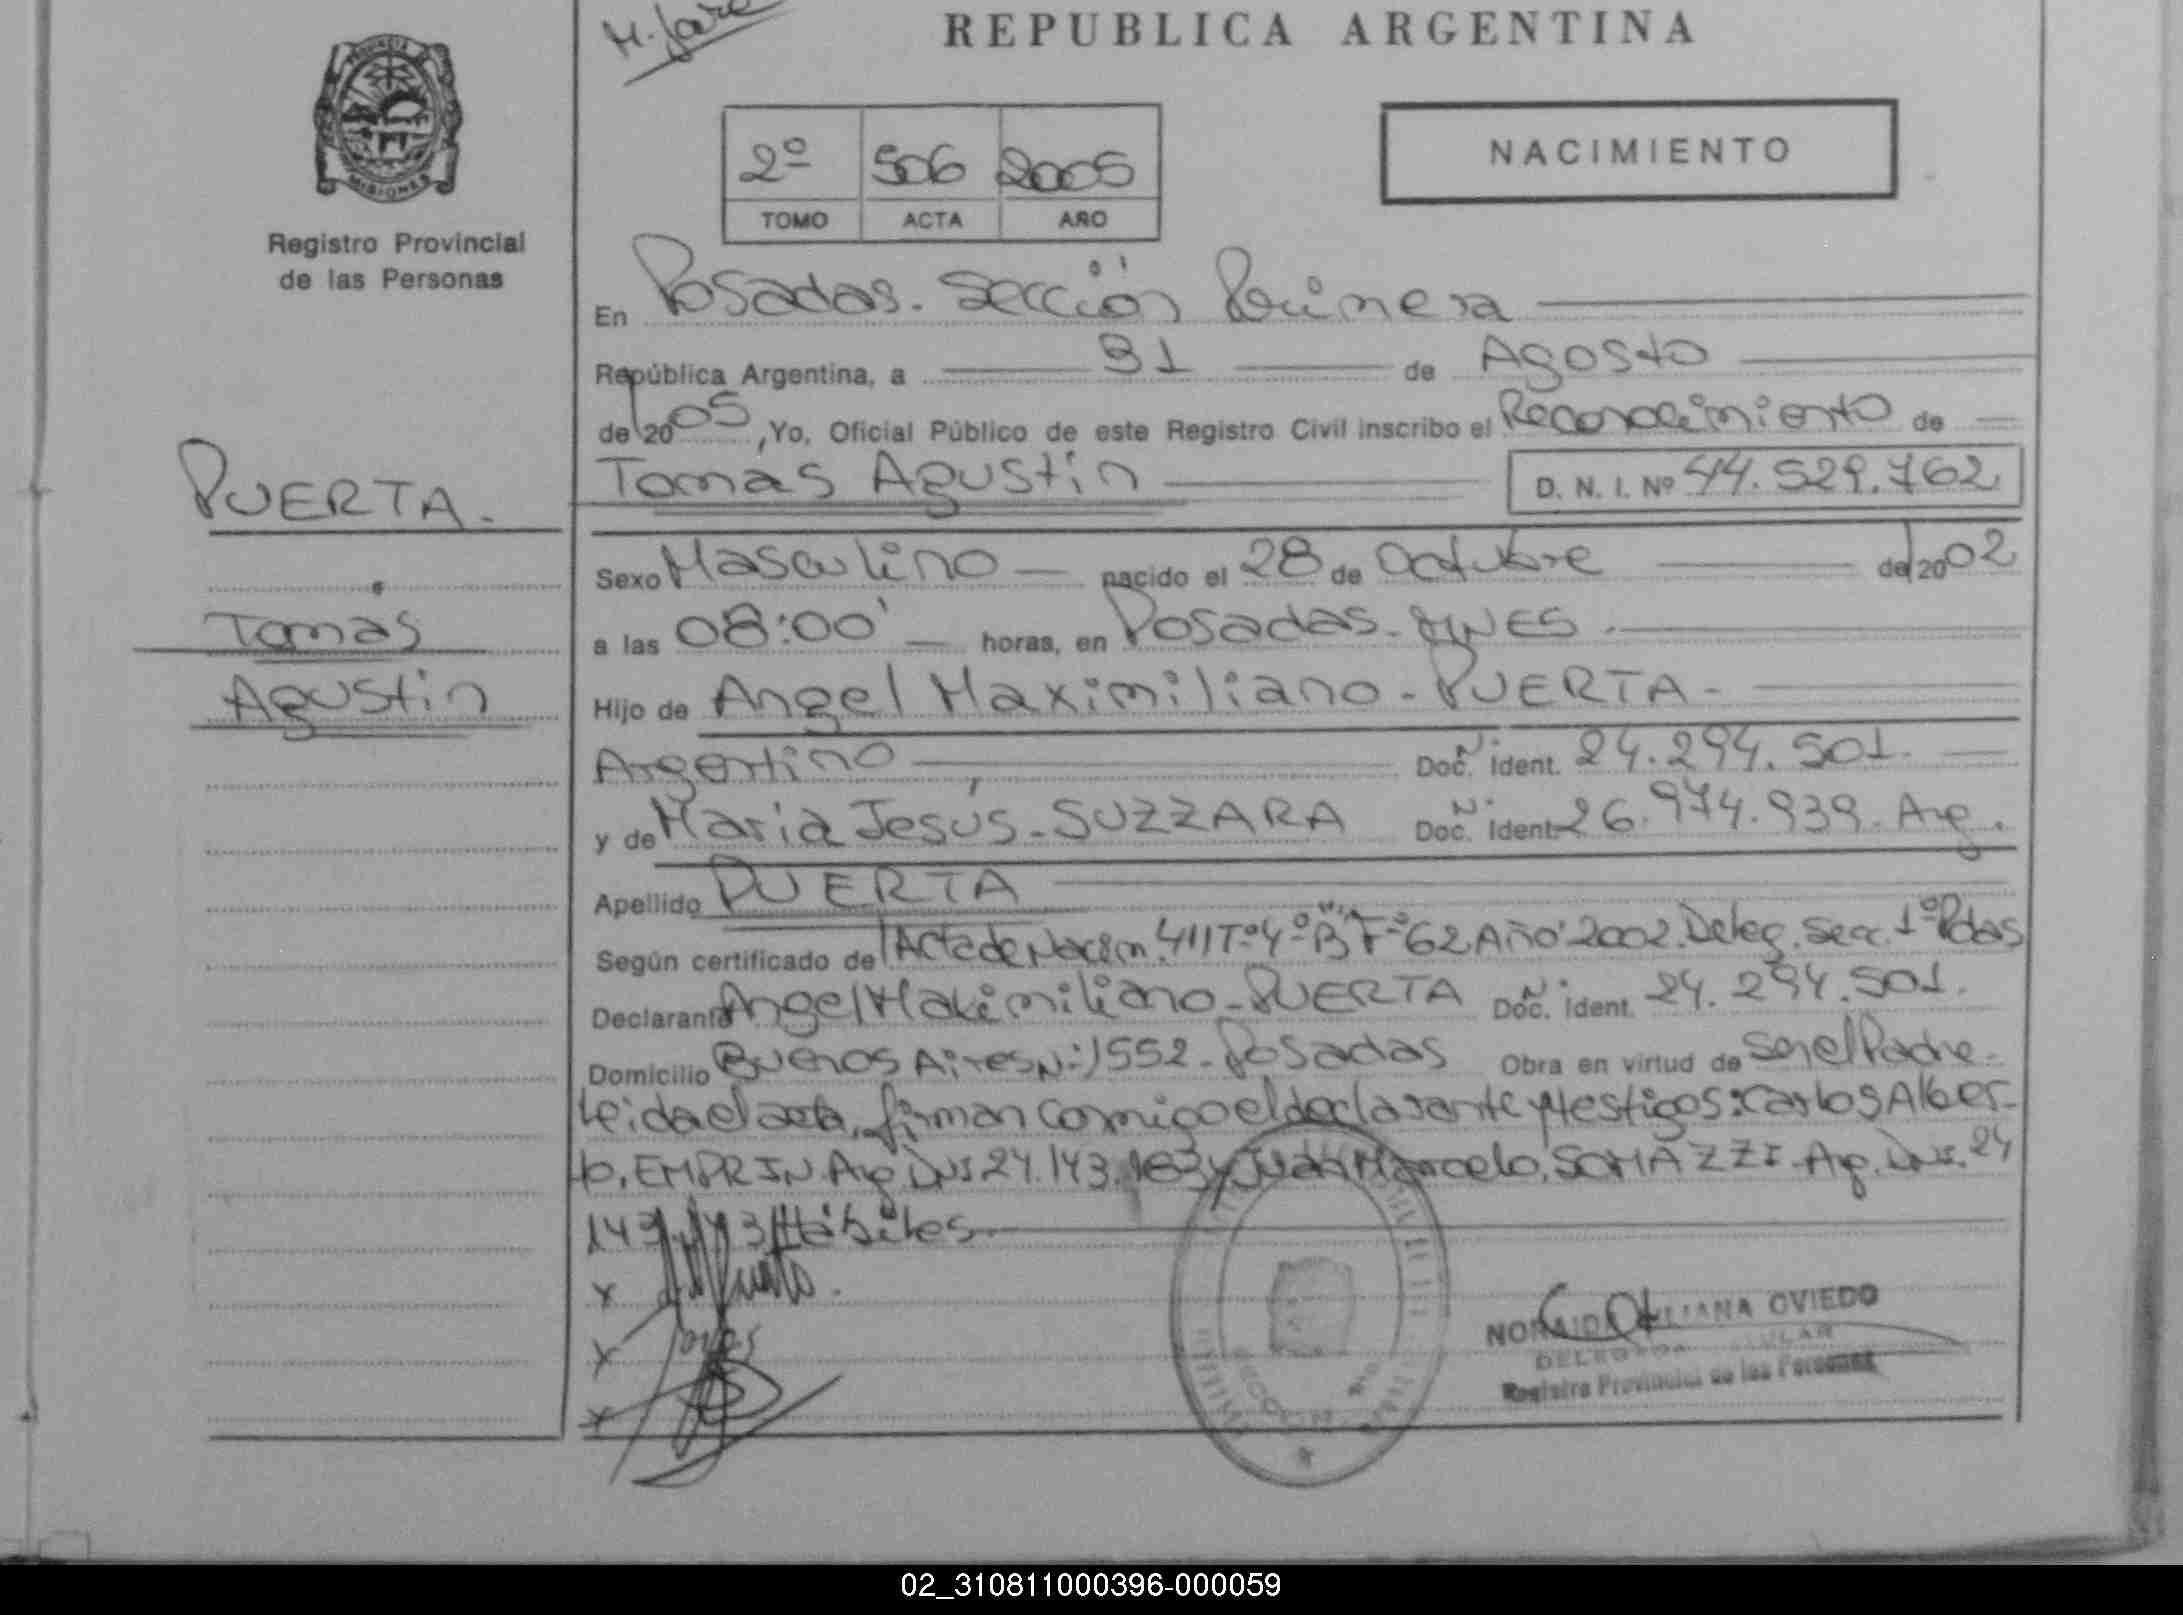 REPUBLICA ARGENTINA
PROVINCIA
MISIONES
Registro Provincial
de las Personas
2º 506 2005
TOMO ACTA AÑO
NACIMIENTO
En Posadas. Sección Primera
República Argentina, a 31 de Agosto
de 2005, Yo, Oficial Público de este Registro Civil inscribo el Reconocimiento de
Tomás Agustin D. N. I. Nº 44.529.762
PUERTA.
Tomás
Agustin
Sexo Masculino nacido el 28 de Octubre de 2002
a las 08:00' horas, en Posadas. MNES.
Hijo de Angel Maximiliano - PUERTA -
Argentino Doc. Ident. 24.294.501.
y de Maria Jesús - SUZZARA Doc. Ident. 26.974.939. Arg.
Apellido PUERTA
Según certificado de Acta de Nacim. 411 Tº 4º B Fº 62 Año 2002. Deleg. Secc. 1º Pdas
Declarante Angel Maximiliano - PUERTA Doc. Ident. 24.294.501.
Domicilio Buenos Aires Nº 1552 - Posadas Obra en virtud de Ser el Padre -
Leida el acta, firman conmigo el declarante y testigos: Carlos Alber-
to, EMPRIN Arg DNI 24.143.163 y Juan Marcelo, SOMAZZI - Arg. DNI. 24
Hábiles.
x
x
x
LILIANA OVIEDO
Registro Provincial de las Personas
SECCION
02_310811000396-000059